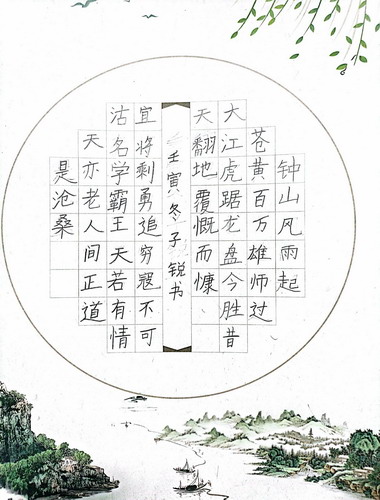 钟山风雨起
苍黄百万雄师过
大江虎踞龙盘今胜昔
天翻地覆慨而慷
壬寅冬子锐书
宜将剩勇追穷寇不可
沽名学霸王天若有情
天亦老人间正道
是沧桑